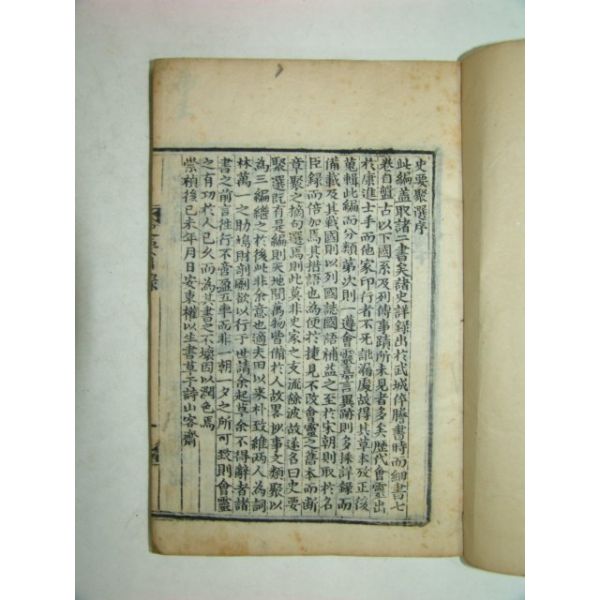 史要聚選序
此編蓋取諸二書矣諸史詳錄出於武城倅謄書時而細書七
卷自盤古以下國系及列傳事蹟所未見者多矣歷代會靈出
於康進士手而他家印行者不死訛漏處故得其草本攷正後
蒐輯此編而分類第次則一遵會靈嘉言異跡則多採詳錄而
備載及其戰國則以列國誌國語補益之至於宋朝則取於名
臣錄而倍加焉其措語也爲便於捷見不改會靈之舊本而斷
章聚之摘句選焉則此莫非史家之支流餘波故遂名曰史要
聚選旣有是編則天地間萬物嘗備於人故畧抄事文類聚以
爲三編繕之於後此非余意也適夫田以来朴致維兩人爲詞
林萬一之助鳩財剞劂欲以行于世請余起草余不得辭者諸
書之前言徃行不啻盈五車而非一朝一夕之所可致則會靈
之有功於人已久而爲其書之不壞因以潤色焉
崇禎後己未年月日安東權以生書草于詩山客齋